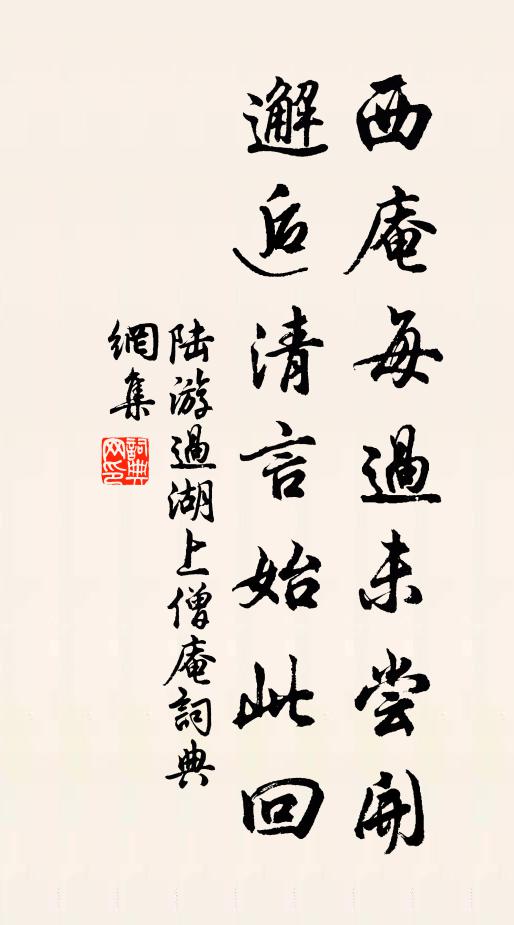 西庵每過未嘗開
邂逅清言始此回
陸游過湖上僧庵詞典
網集
詞典网印